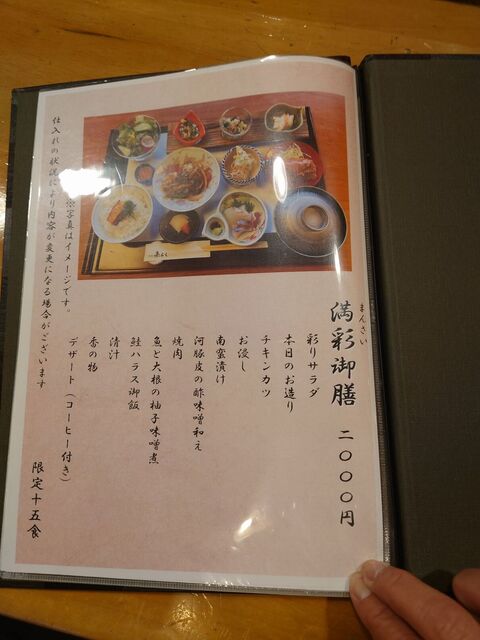 満彩御膳 二〇〇〇円
まんさい
彩りサラダ
本日のお造り
チキンカツ
お浸し
南蛮漬け
河豚皮の酢味噌和え
焼肉
魚と大根の柚子味噌煮
鮭ハラス御飯
清汁
香の物
デザート（コーヒー付き）
※写真はイメージです。
仕入れの状況により内容が変更になる場合がございます
限定十五食